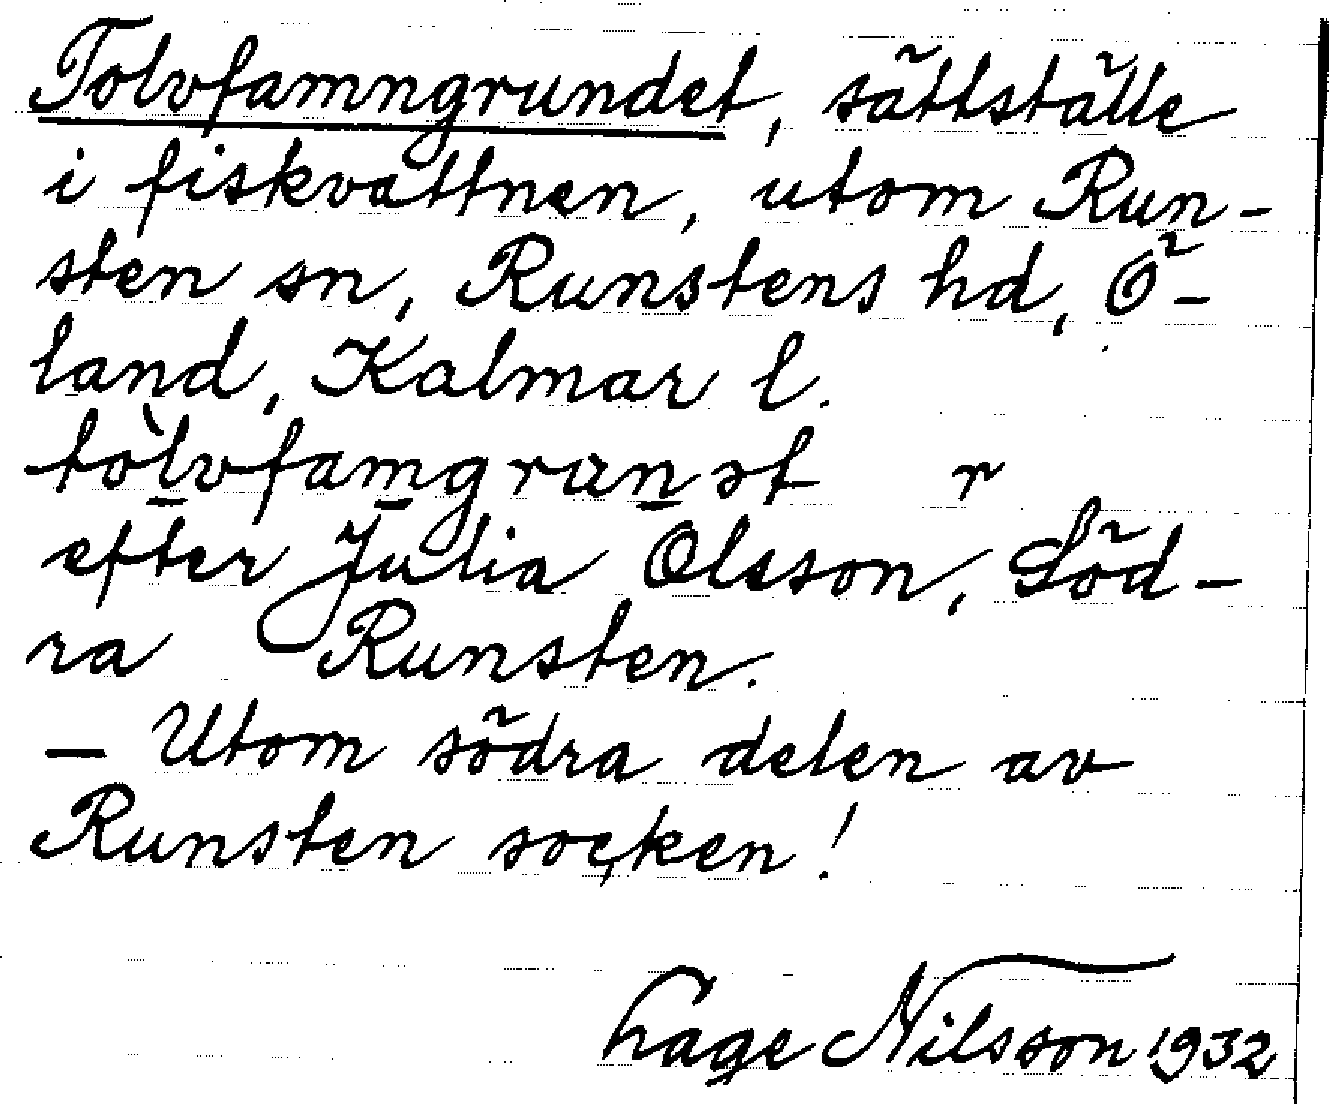 Tolvfamngrundet, sättställe
i fiskvattnen, utom Run-
sten sn, Runstens hd, Ö-
land, Kalmar l.
tòlvfamgrunət r
efter Julia Olsson, Söd-
ra Runsten.
– Utom södra delen av
Runsten socken!
Hage Nilsson 1932